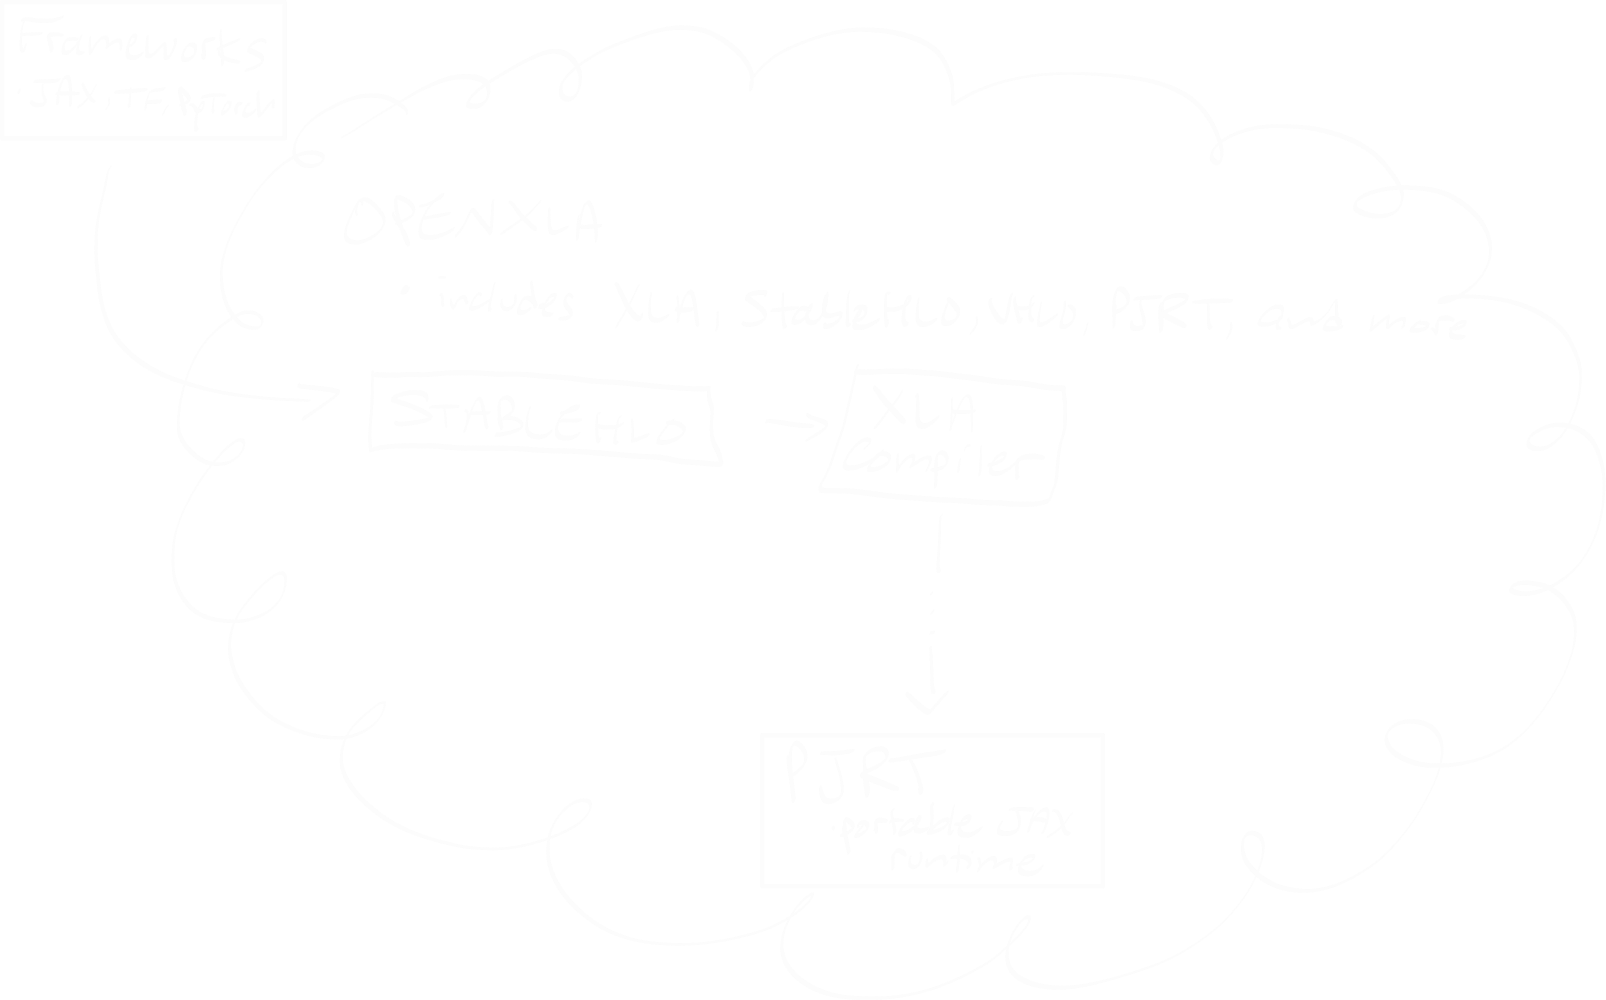 Frameworks
· JAX, TF, PyTorch
OPENXLA
· includes XLA, StableHLO, VHLO, PJRT, and more
STABLEHLO
XLA
Compiler
PJRT
· portable JAX
runtime